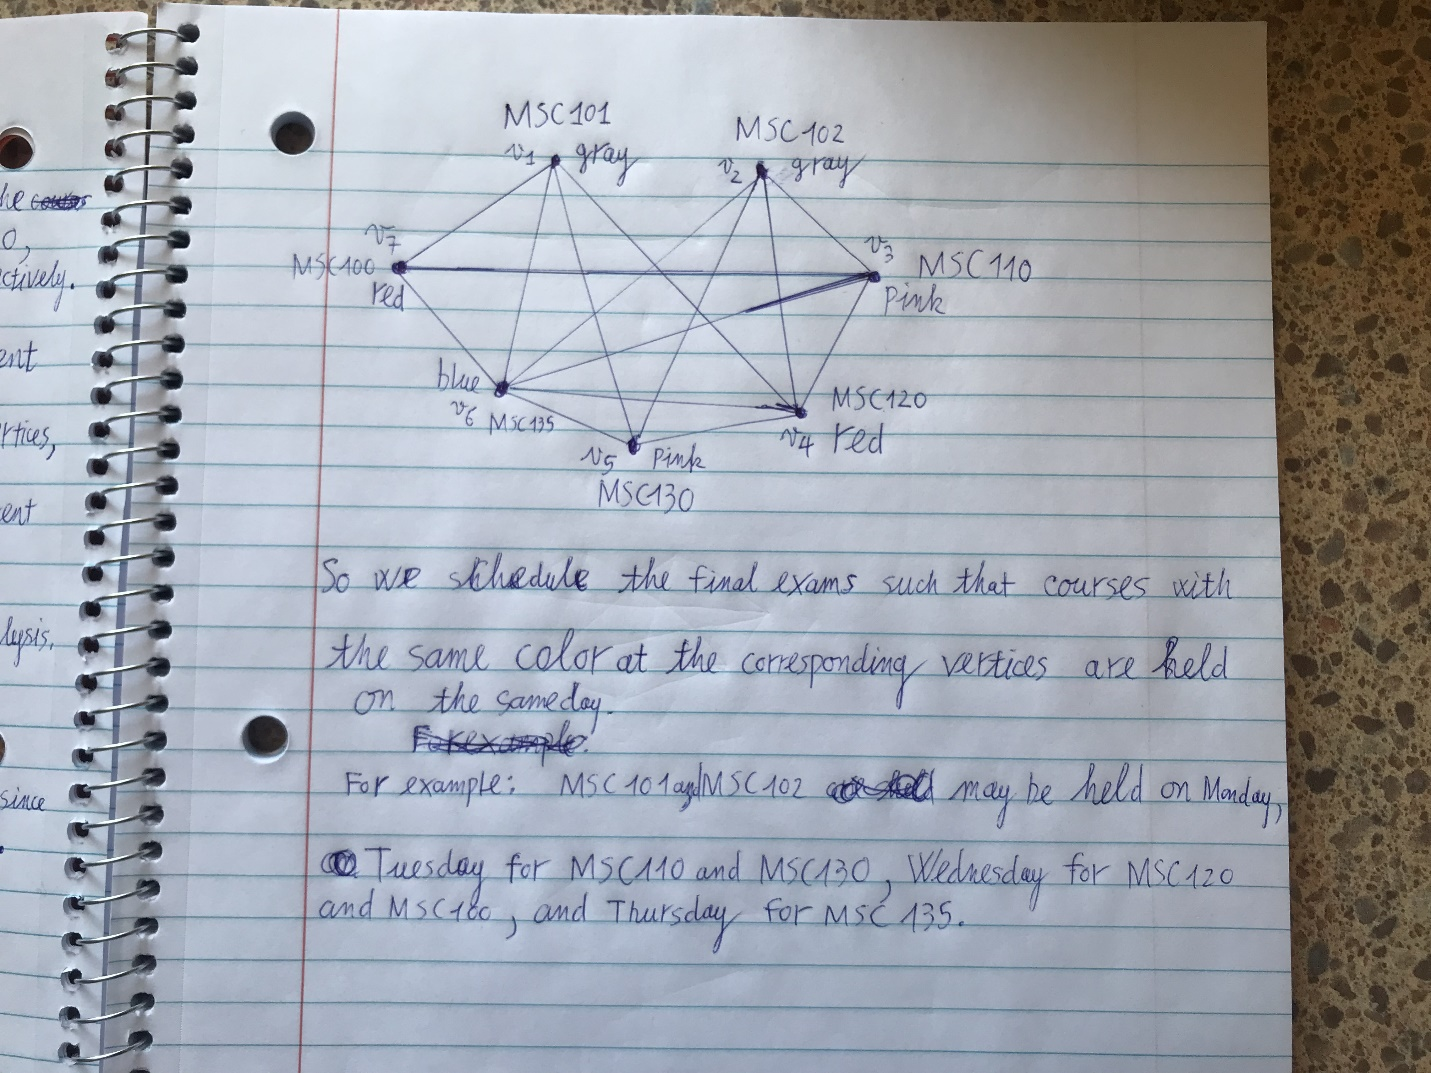 he
0,
ectively.
ent
rtices,
ent
lysis.
since
MSC101
MSC102
v1 gray
v2 gray
v7
v3
MSC100
MSC110
red
Pink
blue
MSC120
v6 MSC135
v4 red
v5 Pink
MSC130
So we schedule the final exams such that courses with
the same color at the corresponding vertices are held
on the same day.
For example:
For example: MSC101 and MSC102 may be held on Monday,
Tuesday for MSC110 and MSC130, Wednesday for MSC120
and MSC100, and Thursday for MSC 135.